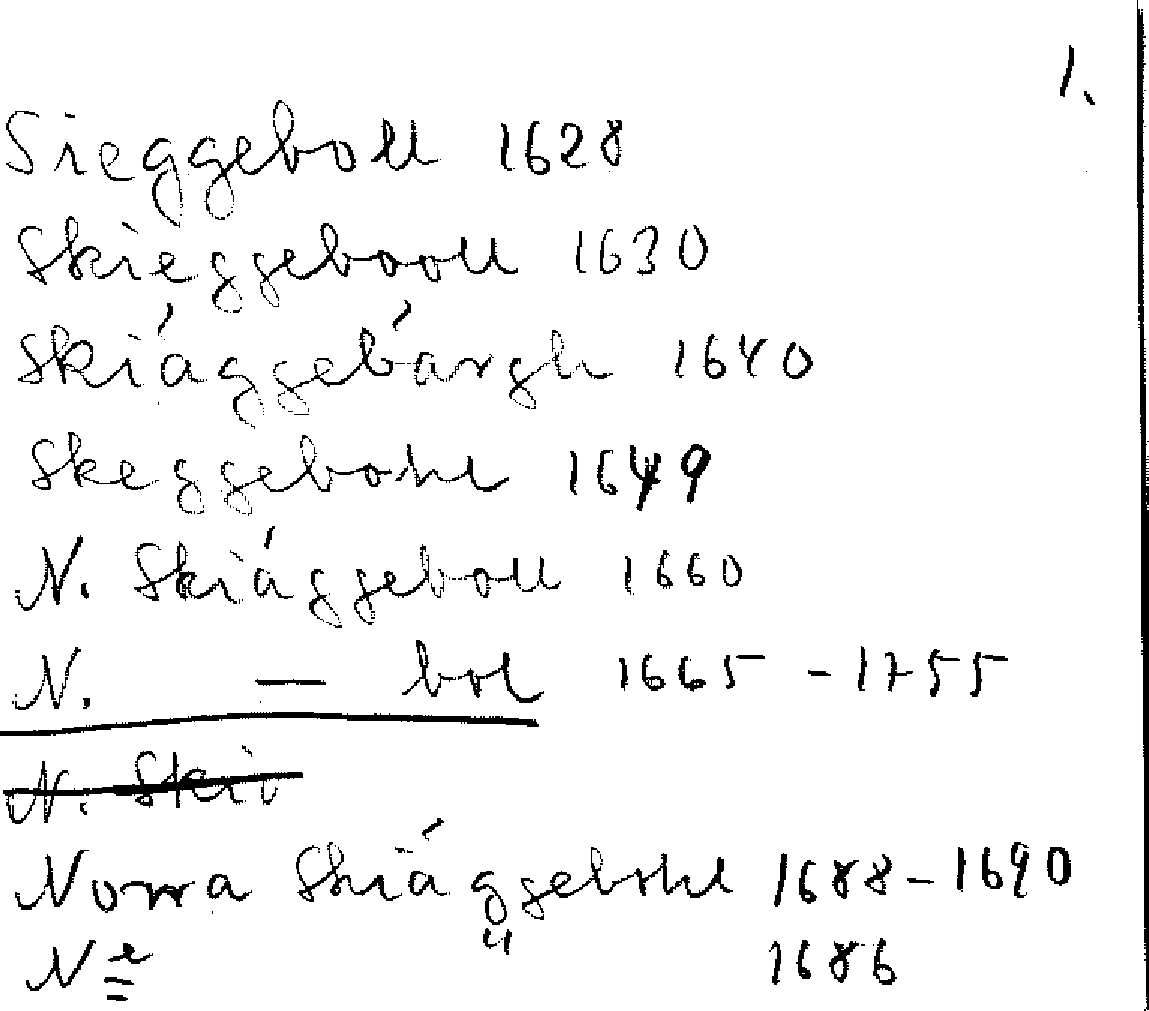 1.
Sieggeboll 1628
Skieggebooll 1630
Skiäggebärgh 1640
Skeggebohl 1649
N. Skiäggeboll 1660
N. — bol 1665 - 1755
N. Ski
Norra Skiäggebohl 1688 - 1690
Ne " 1686